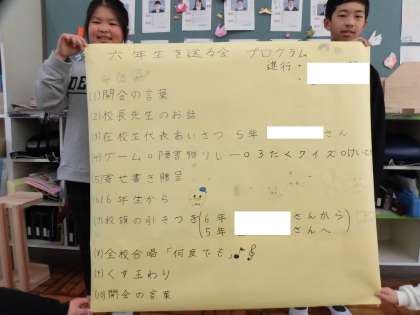 六年生を送る会 プログラム
進行・
・
(1)開会の言葉
(2)校長先生のお話
(3)在校生代表あいさつ 5年 さん
(4)ゲーム○障害物リレー○3たくクイズ○けいど
(5)寄せ書き贈呈
(6)6年生から
(7)校旗の引きつぎ(6年 さんから
5年 さんへ)
(8)全校合唱「何度でも」
(9)くす玉わり
(10)閉会の言葉